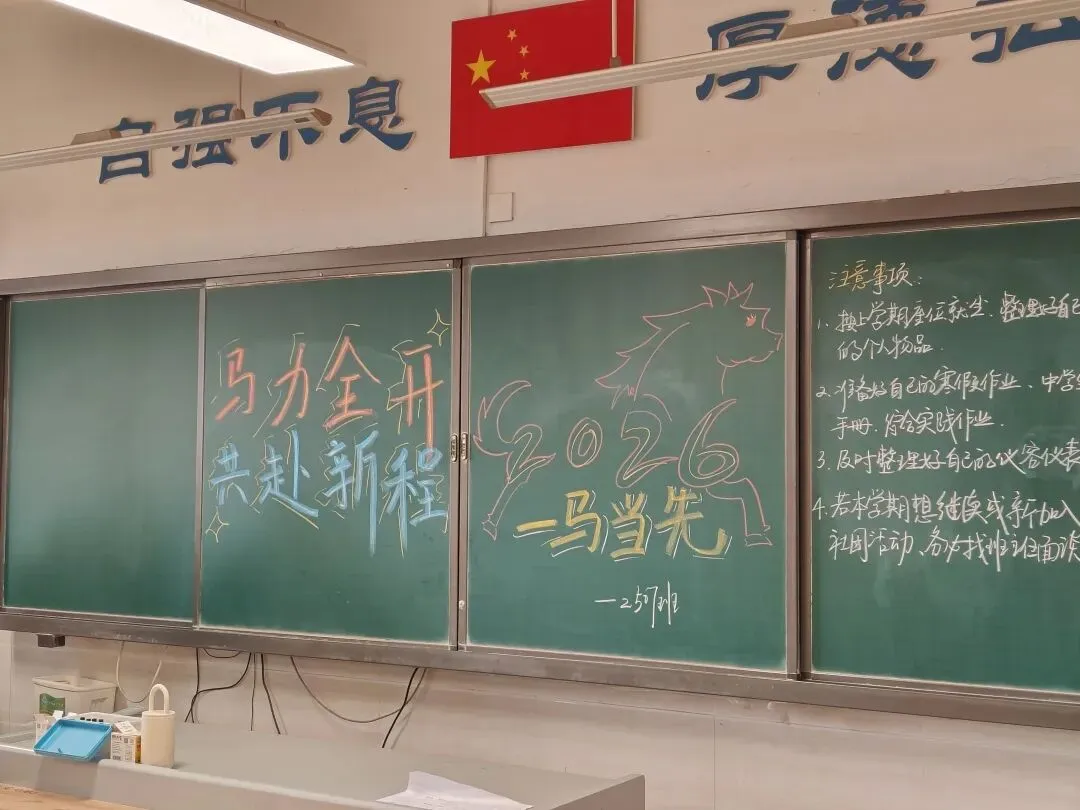 自强不息
厚德
马力全开
共赴新程
2026
一马当先
注意事项：
1. 按上学期座位就坐. 整理好自己
的个人物品.
2. 准备好自己的寒假作业、中学生
手册. 综合实践作业.
3. 及时整理好自己的仪容仪表
4. 若本学期想继续或新加入
社团活动、务必找班主任面谈